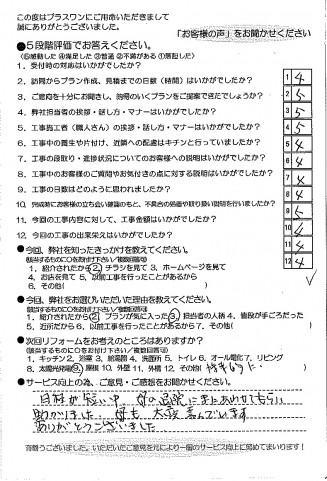 この度はプラスワンにご用命いただきまして
誠にありがとうございました。
「お客様の声」をお聞かせください
●5段階評価でお答えください。
(⑤感動した ④満足した ③普通 ②不満がある ①落胆した)
1. 受付時の対応はいかがでしたか? 1 4
2. 訪問からプラン作成、見積までの日数(時間)はいかがでしたか? 2 5
3. ご意向を十分にお聞きし、納得のいくプランをご提案できたでしょうか? 3 5
4. 弊社担当者の挨拶・話し方・マナーはいかがでしたか? 4 5
5. 工事施工者(職人さん)の挨拶・話し方・マナーはいかがでしたか? 5 5
6. 工事中の養生や片付け、近隣への配慮はキチンと行っていましたか? 6 4
7. 工事の段取り・進捗状況についてのお客様への説明はいかがでしたか? 7 4
8. 工事中のお客様のご質問やお気付きの点に対する説明はいかがでしたか? 8 4
9. 工事の日数はどのように思われましたか? 9 5
10. 完成時にお客様の立ち会い確認のもと、不具合の処置や取り扱い説明を行いましたか? 10 4
11. 今回の工事内容に対して、工事金額はいかがでしたか? 11 4
12. 今回の工事の出来栄えはいかがでしたか? 12 4
●今回、弊社を知ったきっかけを教えてください。
(該当するものに○をお付け下さい/複数回答可)
1. 紹介されたから 2. チラシを見て 3. ホームページを見て
4. お店を見て 5. 以前工事を行ったことがあるから
6. その他( )
●今回、弊社をお選びいただいた理由を教えてください。
(該当するものに○をお付け下さい/複数回答可)
1. 紹介されたから 2. プランが気に入った 3. 担当者の人柄 4. 値段が手ごろだった
5. 近所だから 6. 以前工事を行ったことがあるから 7. その他( )
●次回リフォームをお考えのところはありますか?
(該当するものに○をお付け下さい/複数回答可)
1. キッチン 2. 浴室 3. 給湯器 4. 洗面所 5. トイレ 6. オール電化 7. リビング
8. 太陽光発電 9. 屋根 10. 外壁 11. 外構 12. その他(
●サービス向上の為、ご意見・ご感想をお聞かせください。
日程が短い中、母の退院にまにあわせてもらい
助かりました。母も大変喜んでいます
ありがとうございました
有難うございました。いただいたご意見を元により一層のサービス向上に努めてまいります!